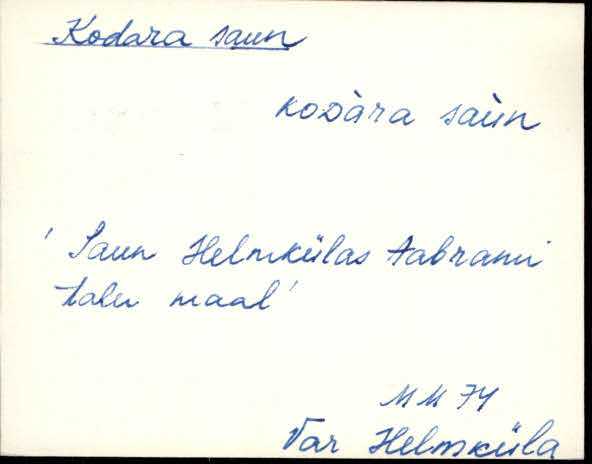 Kodara saun
koDàra saùn
'Saun Helmkülas Aabrami
talu maal'
MM 74
Var Helmküla